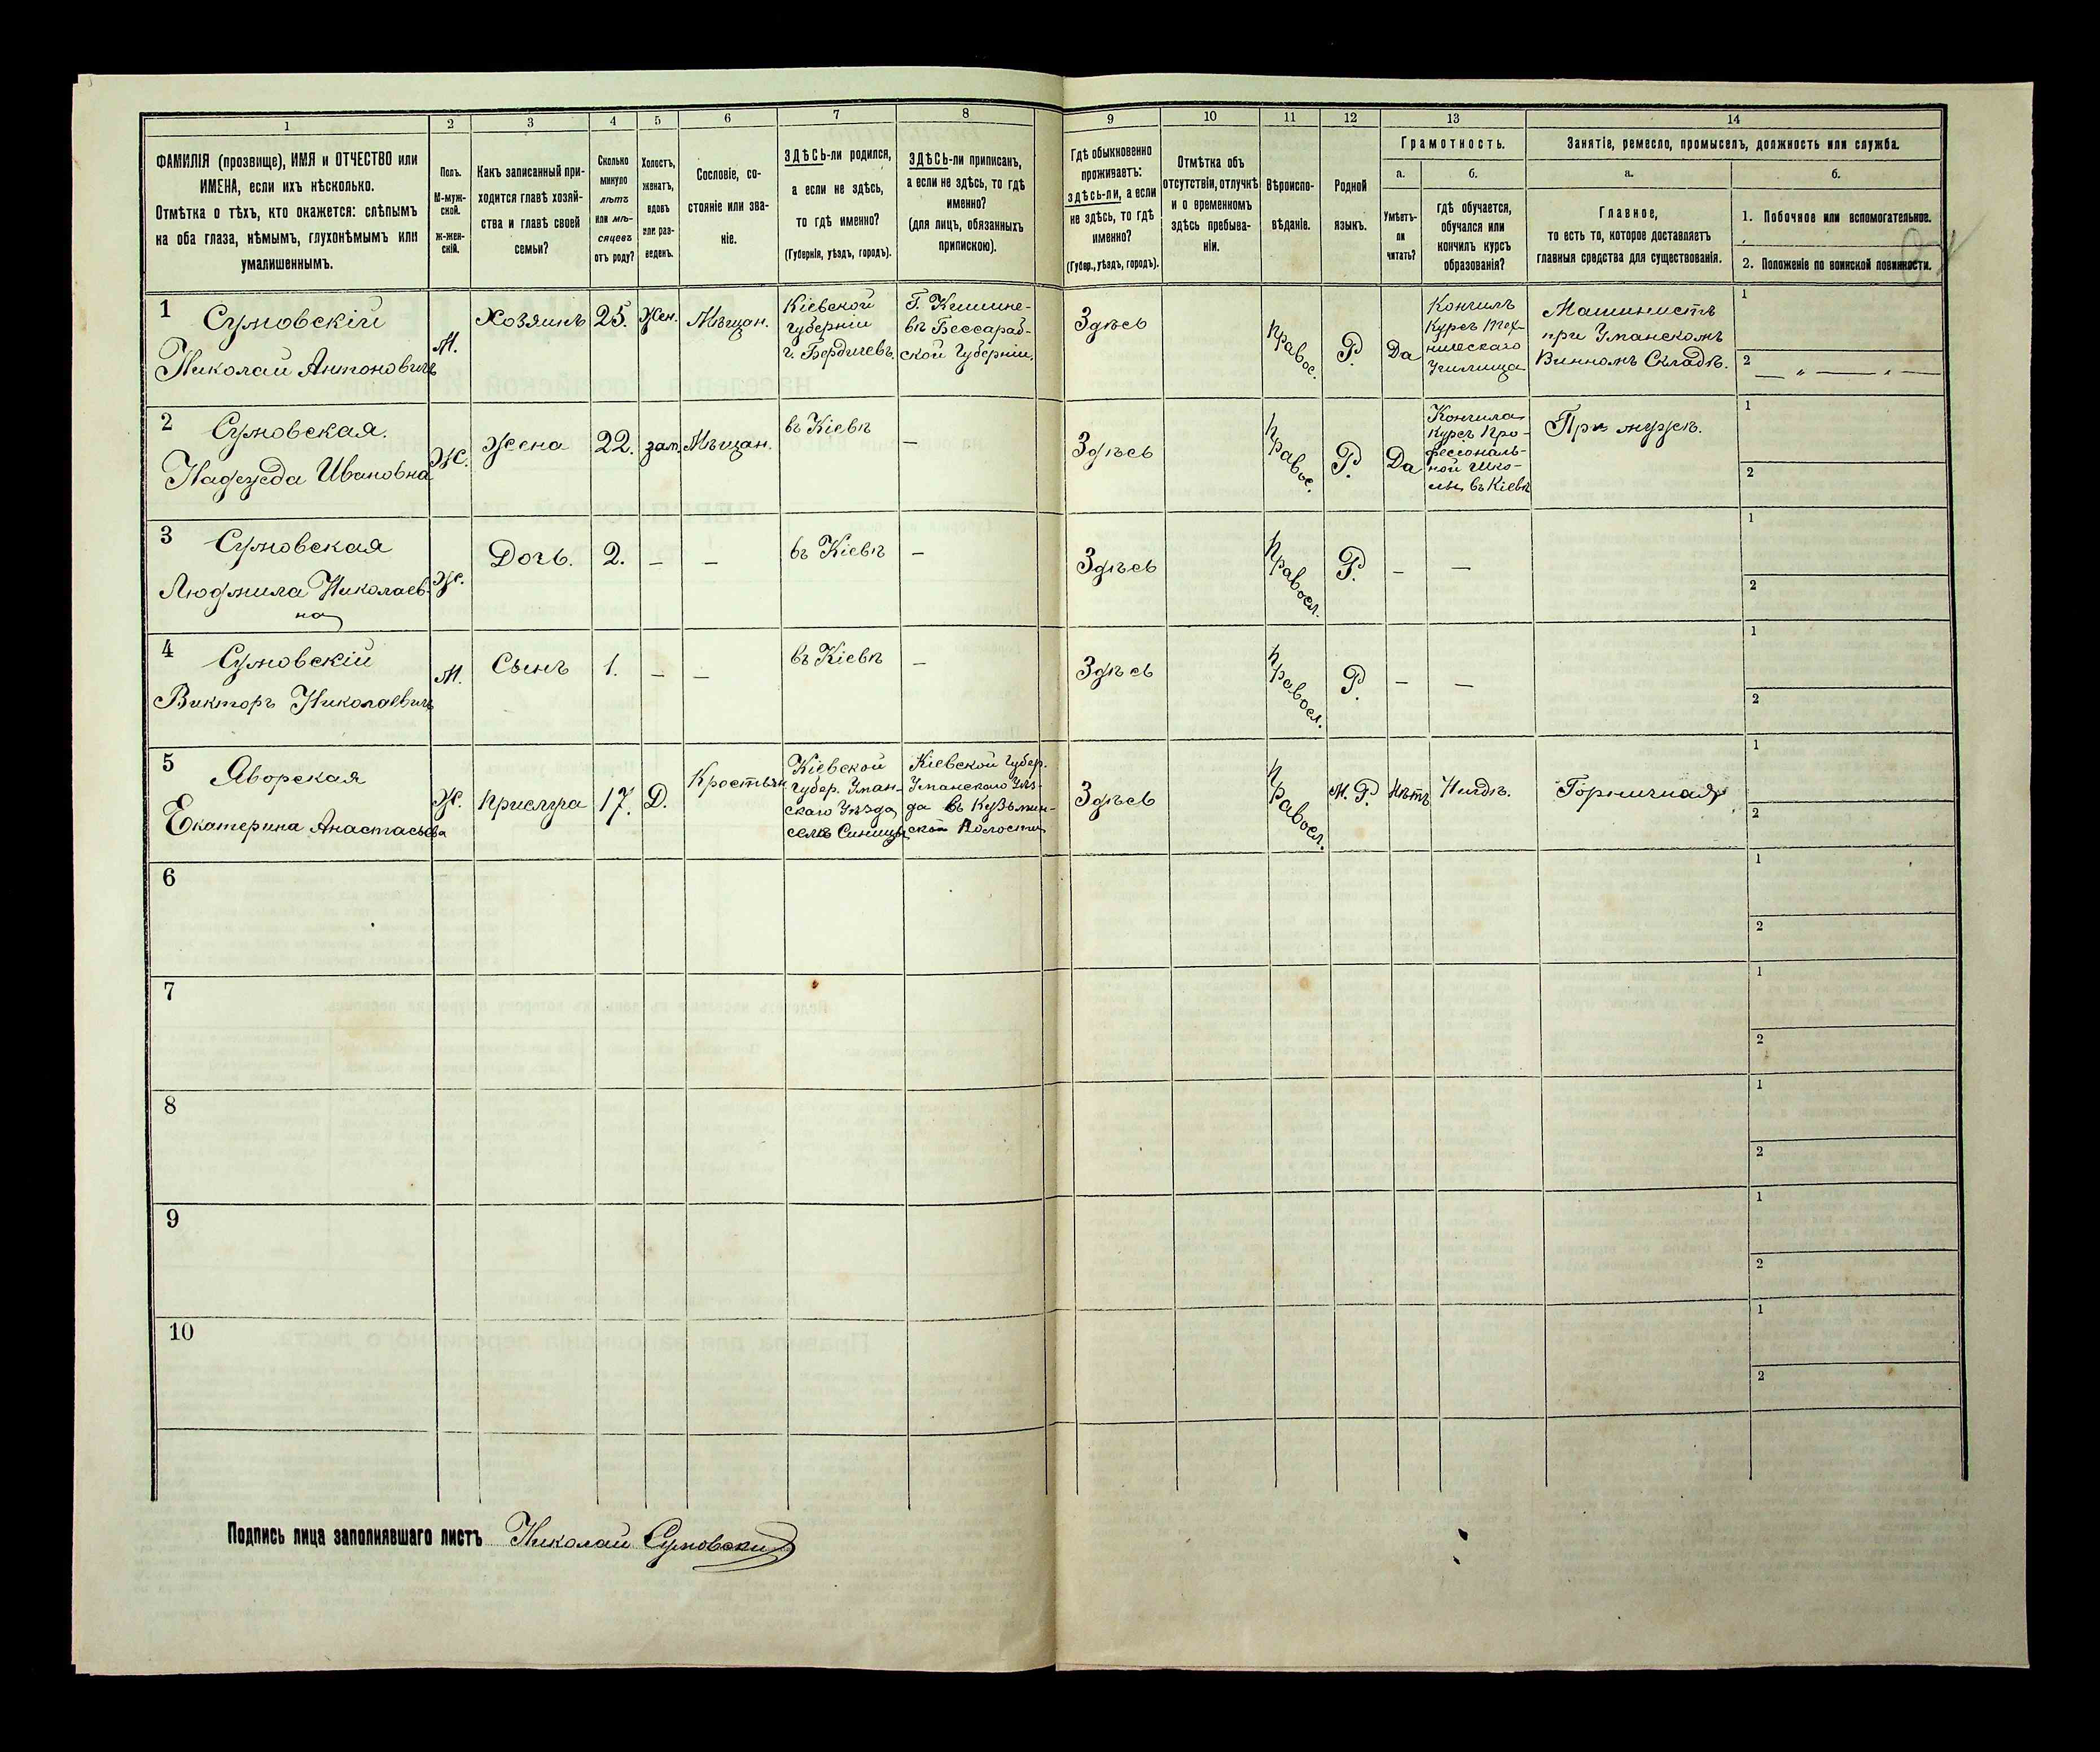 1 2 3 4 5 6 7 8 9 10 11 12 13 14
ФАМИЛІЯ (прозвище), ИМЯ и ОТЧЕСТВО или
ИМЕНА, если ихъ нѣсколько.
Отмѣтка о тѣхъ, кто окажется: слѣпымъ
на оба глаза, нѣмымъ, глухонѣмымъ или
умалишеннымъ.
Полъ.
М-муж-
ской.
Ж-жен-
скій.
Какъ записанный при-
ходится главѣ хозяй-
ства и главѣ своей
семьи?
Сколько
минуло
лѣтъ
или мѣ-
сяцевъ
отъ роду?
Холостъ,
женатъ,
вдовъ
или раз-
веденъ.
Сословіе, со-
стояніе или зва-
ніе.
ЗДѢСЬ-ли родился,
а если не здѣсь,
то гдѣ именно?
(Губернія, уѣздъ, городъ).
ЗДѢСЬ-ли приписанъ,
а если не здѣсь, то гдѣ
именно?
(для лицъ, обязанныхъ
припискою).
Гдѣ обыкновенно
проживаетъ:
здѣсь-ли, а если
не здѣсь, то гдѣ
именно?
(Губер., уѣздъ, городъ).
Отмѣтка объ
отсутствіи, отлучкѣ
и о временномъ
здѣсь пребыва-
ніи.
Вѣроиспо-
вѣданіе.
Родной
языкъ.
Грамотность.
а.
Умѣетъ-
ли
читать?
б.
гдѣ обучается,
обучался или
кончилъ курсъ
образованія?
Занятіе, ремесло, промыселъ, должность или служба.
а.
Главное,
то есть то, которое доставляетъ
главныя средства для существованія.
б.
1. Побочное или вспомогательное.
2. Положеніе по воинской повинности.
1
Сумовскій
Николай Антоновичъ
М.
Хозяинъ
25.
Жен.
Мѣщан.
Кіевской
Губерніи
г. Бердичевъ.
Г. Кишине-
вѣ Бессараб-
ской Губерніи.
Здѣсь
Правос.
Р.
Да
Кончилъ
Курсъ Тех-
ническаго
Училища
Машинистъ
при Уманскомъ
Винномъ Складѣ.
1
2 — „ — „ —
2
Сумовская.
Надежда Ивановна
Ж.
Жена
22.
зам.
Мѣщан.
въ Кіевѣ
—
Здѣсь
Правос.
Р.
Да
Кончила
Курсъ Про-
фессиональ-
ной Шко-
лы въ Кіевѣ
При мужѣ.
1
2
3
Сумовская
Людмила Николаев-
на
Ж.
Дочь.
2.
—
—
въ Кіевѣ
—
Здѣсь
Правосл.
Р.
—
—
1
2
4
Сумовскій
Викторъ Николаевичъ
М.
Сынъ
1.
—
—
въ Кіевѣ
—
Здѣсь
Правосл.
Р.
—
—
1
2
5
Яворская
Екатерина Анастасьева
Ж.
Прислуга
17.
Д.
Крестьян
Кіевской
Губер. Уман-
скаго Уѣзда
селѣ Синицы
Кіевской Губер.
Уманскаго Уѣз-
да въ Кузьмин-
ской Волости
Здѣсь
Правосл.
М. Р.
Нѣтъ
Нигдѣ.
Горничная
1
2
6
1
2
7
1
2
8
1
2
9
1
2
10
1
2
Подпись лица заполнявшаго листъ Николай Сумовский